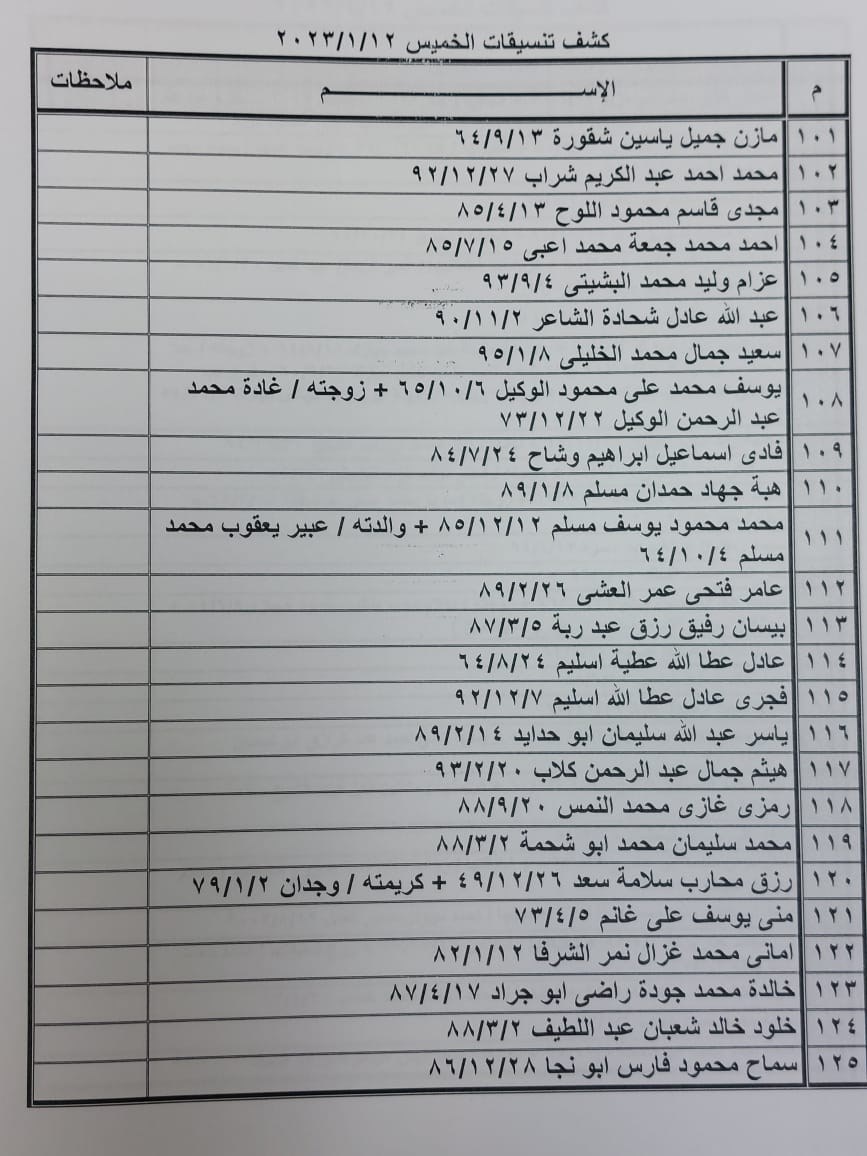 كشف تنسيقات الخميس ٢٠٢٣/١/١٢
م الإســـــــــم ملاحظات
١٠١ مازن جميل ياسين شقورة ٦٤/٩/١٣
١٠٢ محمد احمد عبد الكريم شراب ٩٢/١٢/٢٧
١٠٣ مجدى قاسم محمود اللوح ٨٥/٤/١٣
١٠٤ احمد محمد جمعة محمد اعبى ٨٥/٧/١٥
١٠٥ عزام وليد محمد البشيتى ٩٣/٩/٤
١٠٦ عبد الله عادل شحادة الشاعر ٩٠/١١/٢
١٠٧ سعيد جمال محمد الخليلى ٩٥/١/٨
١٠٨ يوسف محمد على محمود الوكيل ٦٥/١٠/٦ + زوجته / غادة محمد
عبد الرحمن الوكيل ٧٣/١٢/٢٢
١٠٩ فادى اسماعيل ابراهيم وشاح ٨٤/٧/٢٤
١١٠ هبة جهاد حمدان مسلم ٨٩/١/٨
١١١ محمد محمود يوسف مسلم ٨٥/١٢/١٢ + والدته / عبير يعقوب محمد
مسلم ٦٤/١٠/٤
١١٢ عامر فتحى عمر العشى ٨٩/٢/٢٦
١١٣ بيسان رفيق رزق عبد ربة ٨٧/٣/٥
١١٤ عادل عطا الله عطية اسليم ٦٤/٨/٢٤
١١٥ فجرى عادل عطا الله اسليم ٩٢/١٢/٧
١١٦ ياسر عبد الله سليمان ابو حدايد ٨٩/٢/١٤
١١٧ هيثم جمال عبد الرحمن كلاب ٩٣/٢/٢٠
١١٨ رمزى غازى محمد النمس ٨٨/٩/٢٠
١١٩ محمد سليمان محمد ابو شحمة ٨٨/٣/٢
١٢٠ رزق محارب سلامة سعد ٤٩/١٢/٢٦ + كريمته / وجدان ٧٩/١/٢
١٢١ منى يوسف على غانم ٧٣/٤/٥
١٢٢ امانى محمد غزال نمر الشرفا ٨٢/١/١٢
١٢٣ خالدة محمد جودة راضى ابو جراد ٨٧/٤/١٧
١٢٤ خلود خالد شعبان عبد اللطيف ٨٨/٣/٢
١٢٥ سماح محمود فارس ابو نجا ٨٦/١٢/٢٨